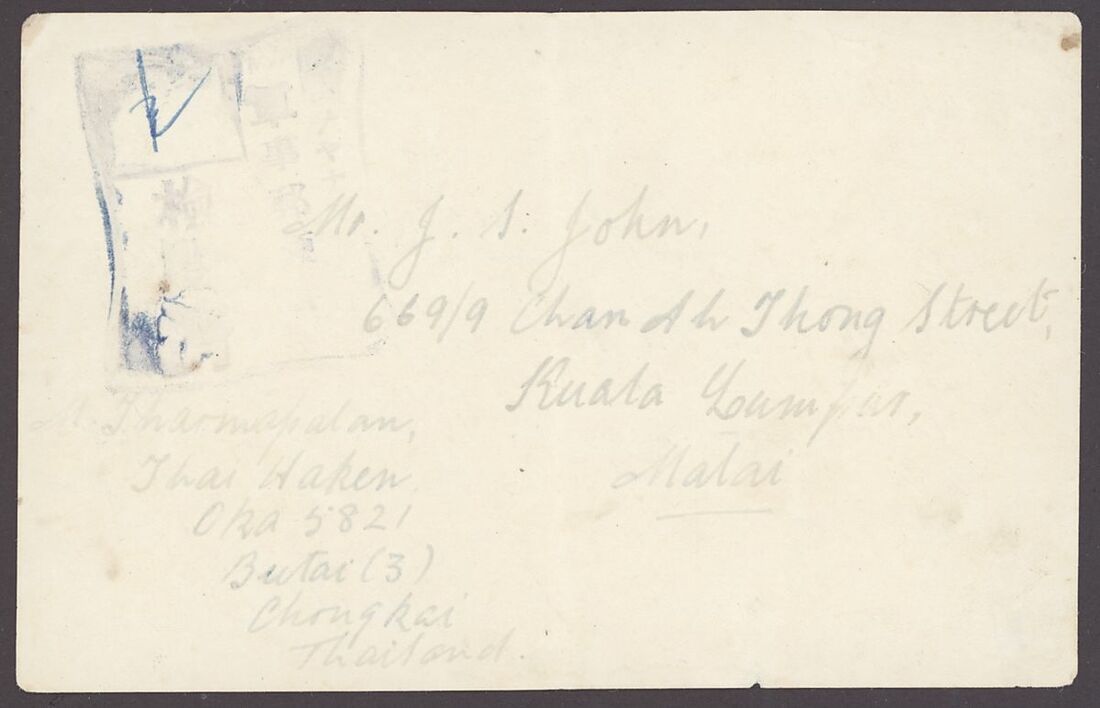 軍事
Mr. J. S. John,
669/9 Chan Ah Thong Street,
Kuala Lumpur,
Malai
M. Tharmapalan,
Thai Haken
Oka 5821
Butai (3)
Chongkai
Thailand.